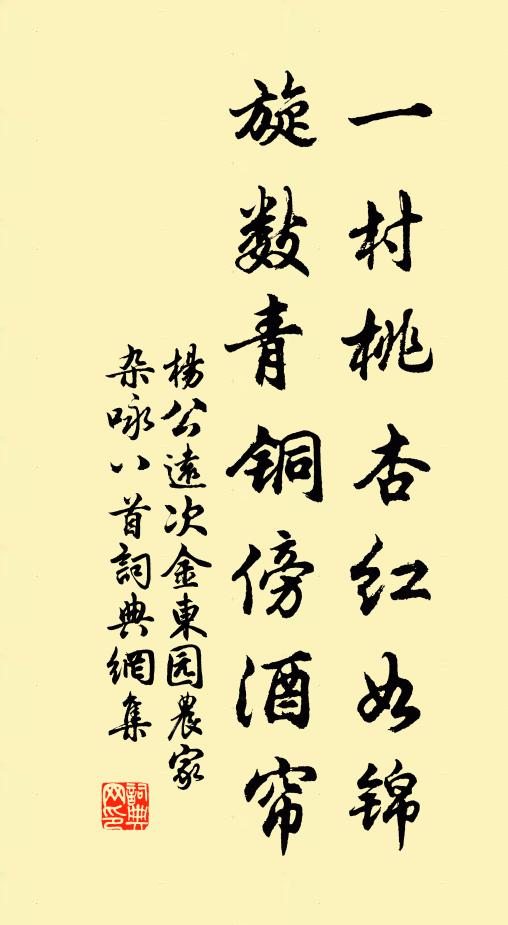 一村桃杏红如锦
旋数青铜傍酒帘
楊公遠次金東园農家
杂咏八首詞典網集
詞典网印